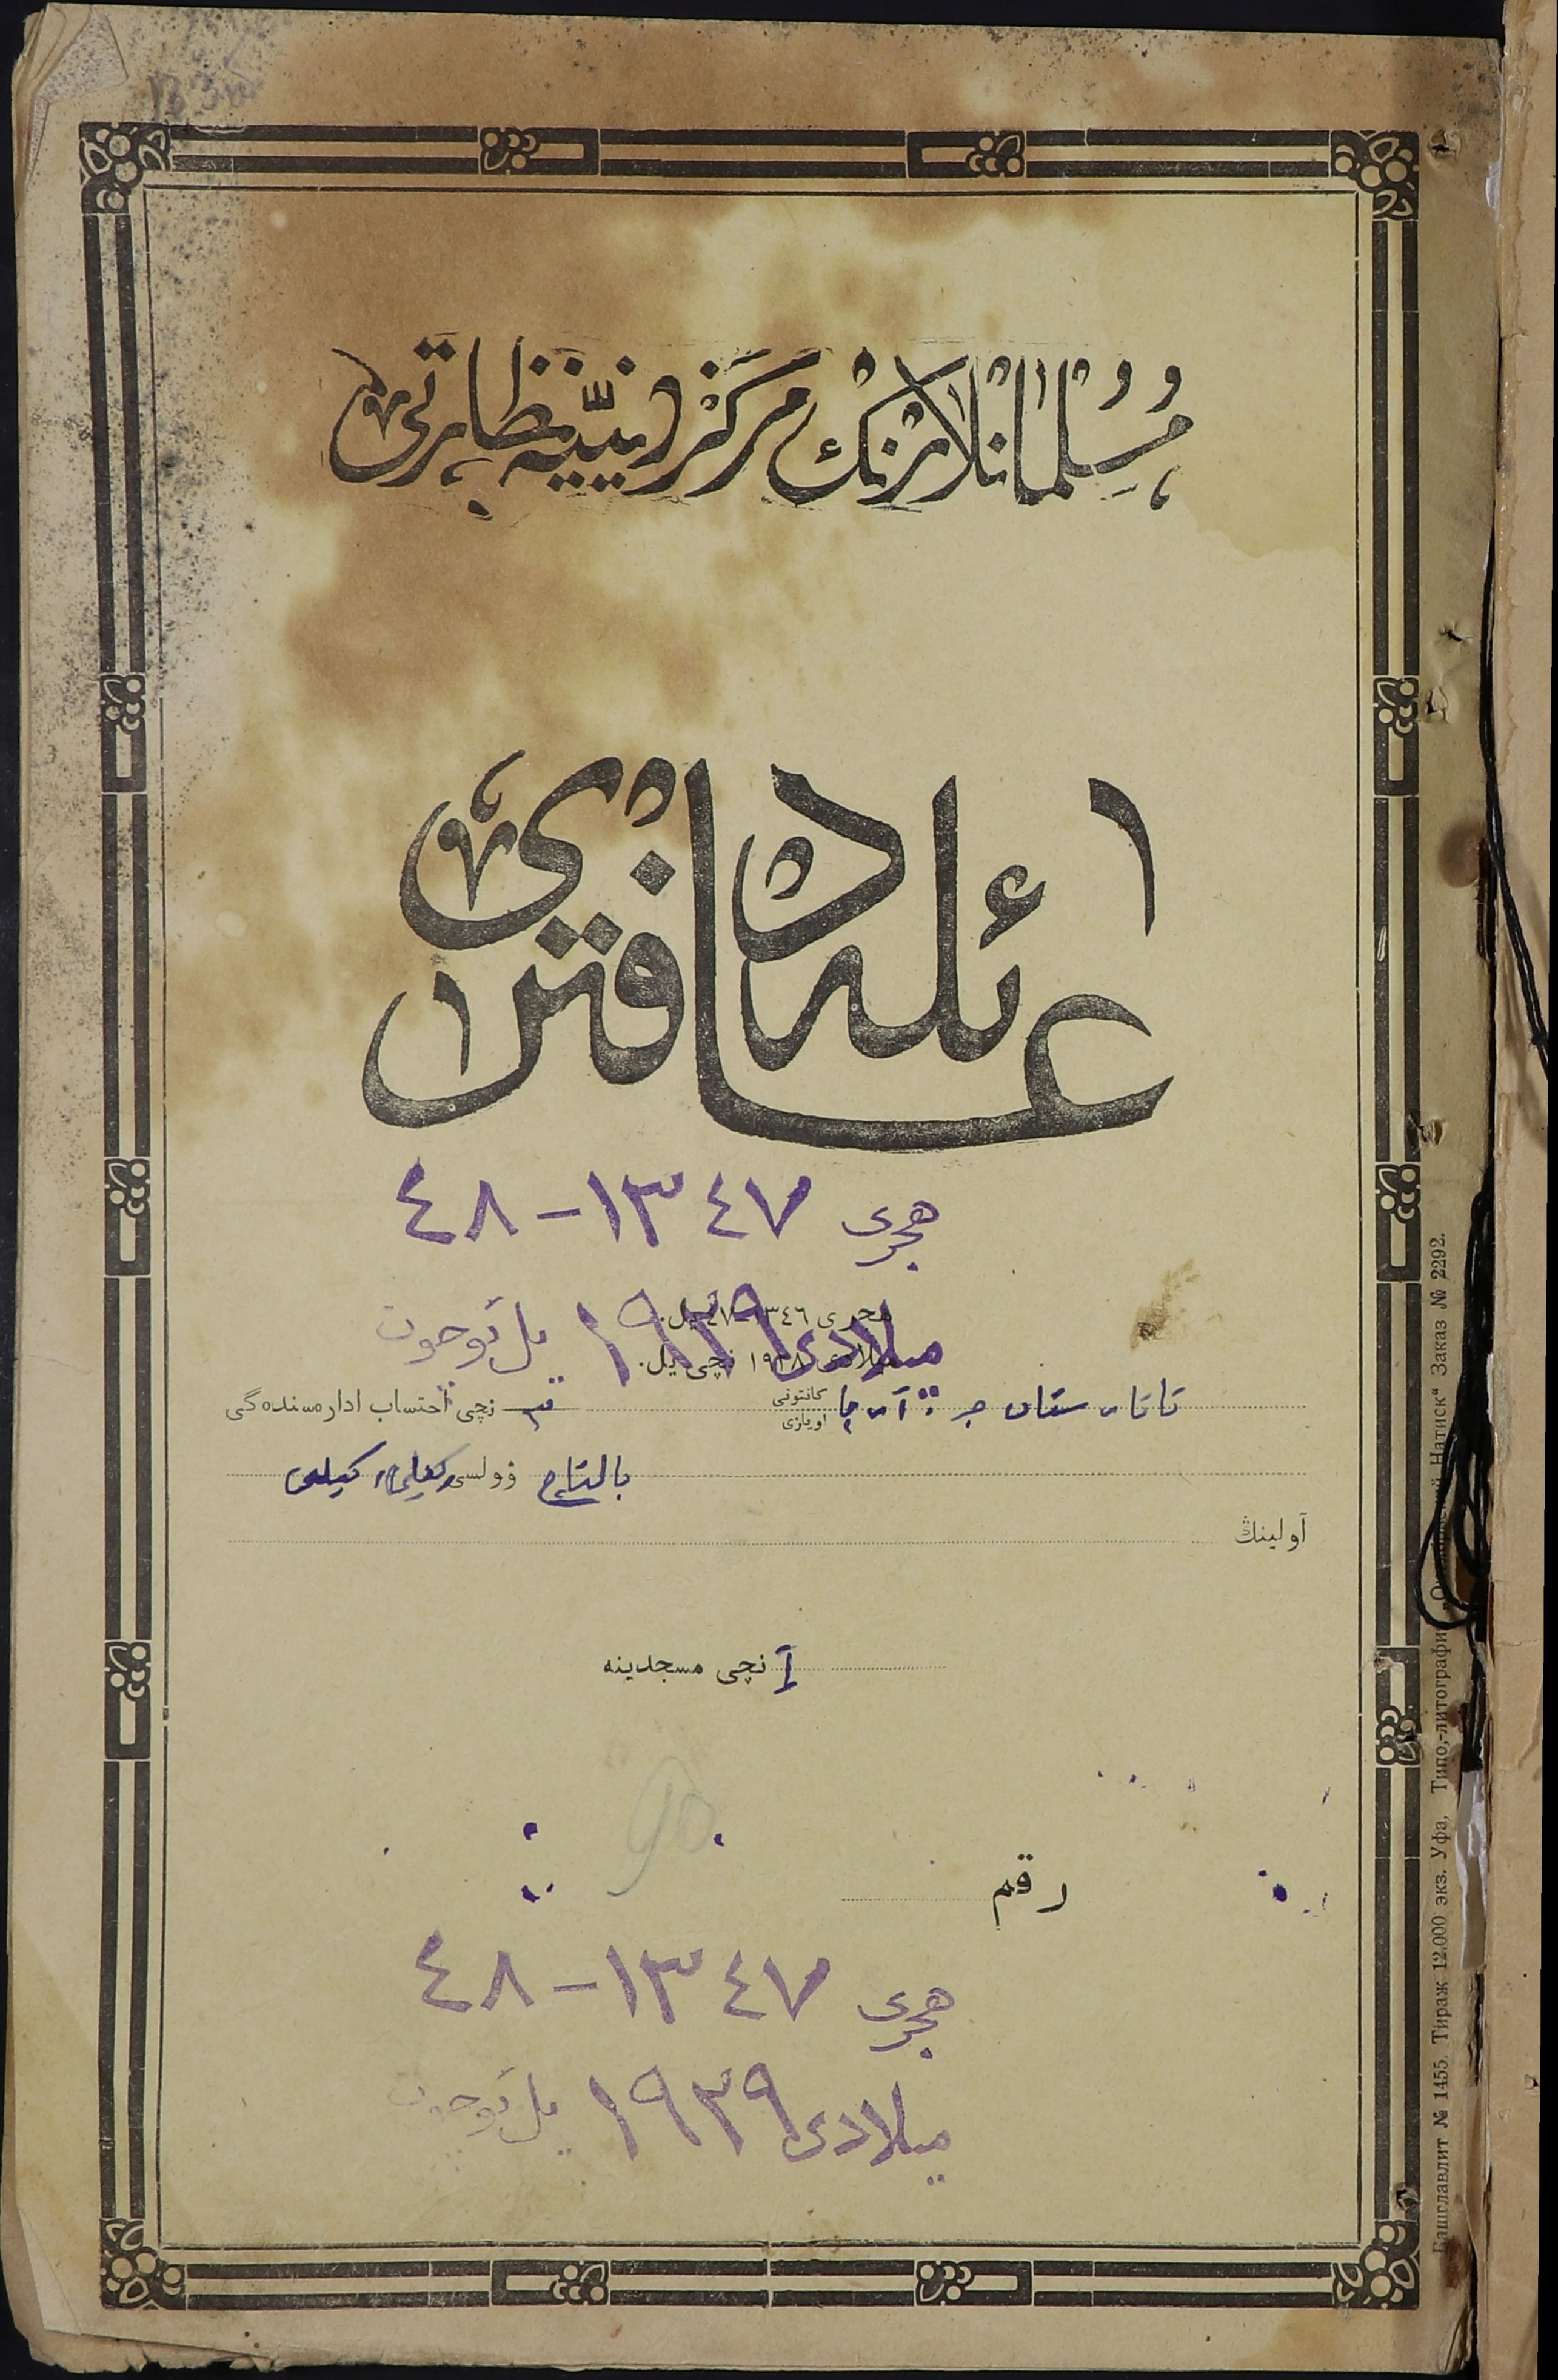 مسلمانلارنڭ مركز دينيه نظارتى
عائله دفترى
هجرى ١٣٤٧-٤٨
هجرى ١٣٤٦-٤٧ يل.
ميلادى ١٩٢٩ يل ئوچون
ميلادى ١٩٢٨ نچى يل.
تاتارستان ج. آرچا كانتونى اويازى نچى احتساب اداره‌سنده‌گى
بالتاچ ڤولسى
آولينڭ
١ نچى مسجدينه
رقم
هجرى ١٣٤٧-٤٨
ميلادى ١٩٢٩ يل ئوچون
Башглавлит № 1455. Тираж 12.000 экз. Уфа, Типо.-литография „Октябрьский Натиск“ Заказ № 2292.